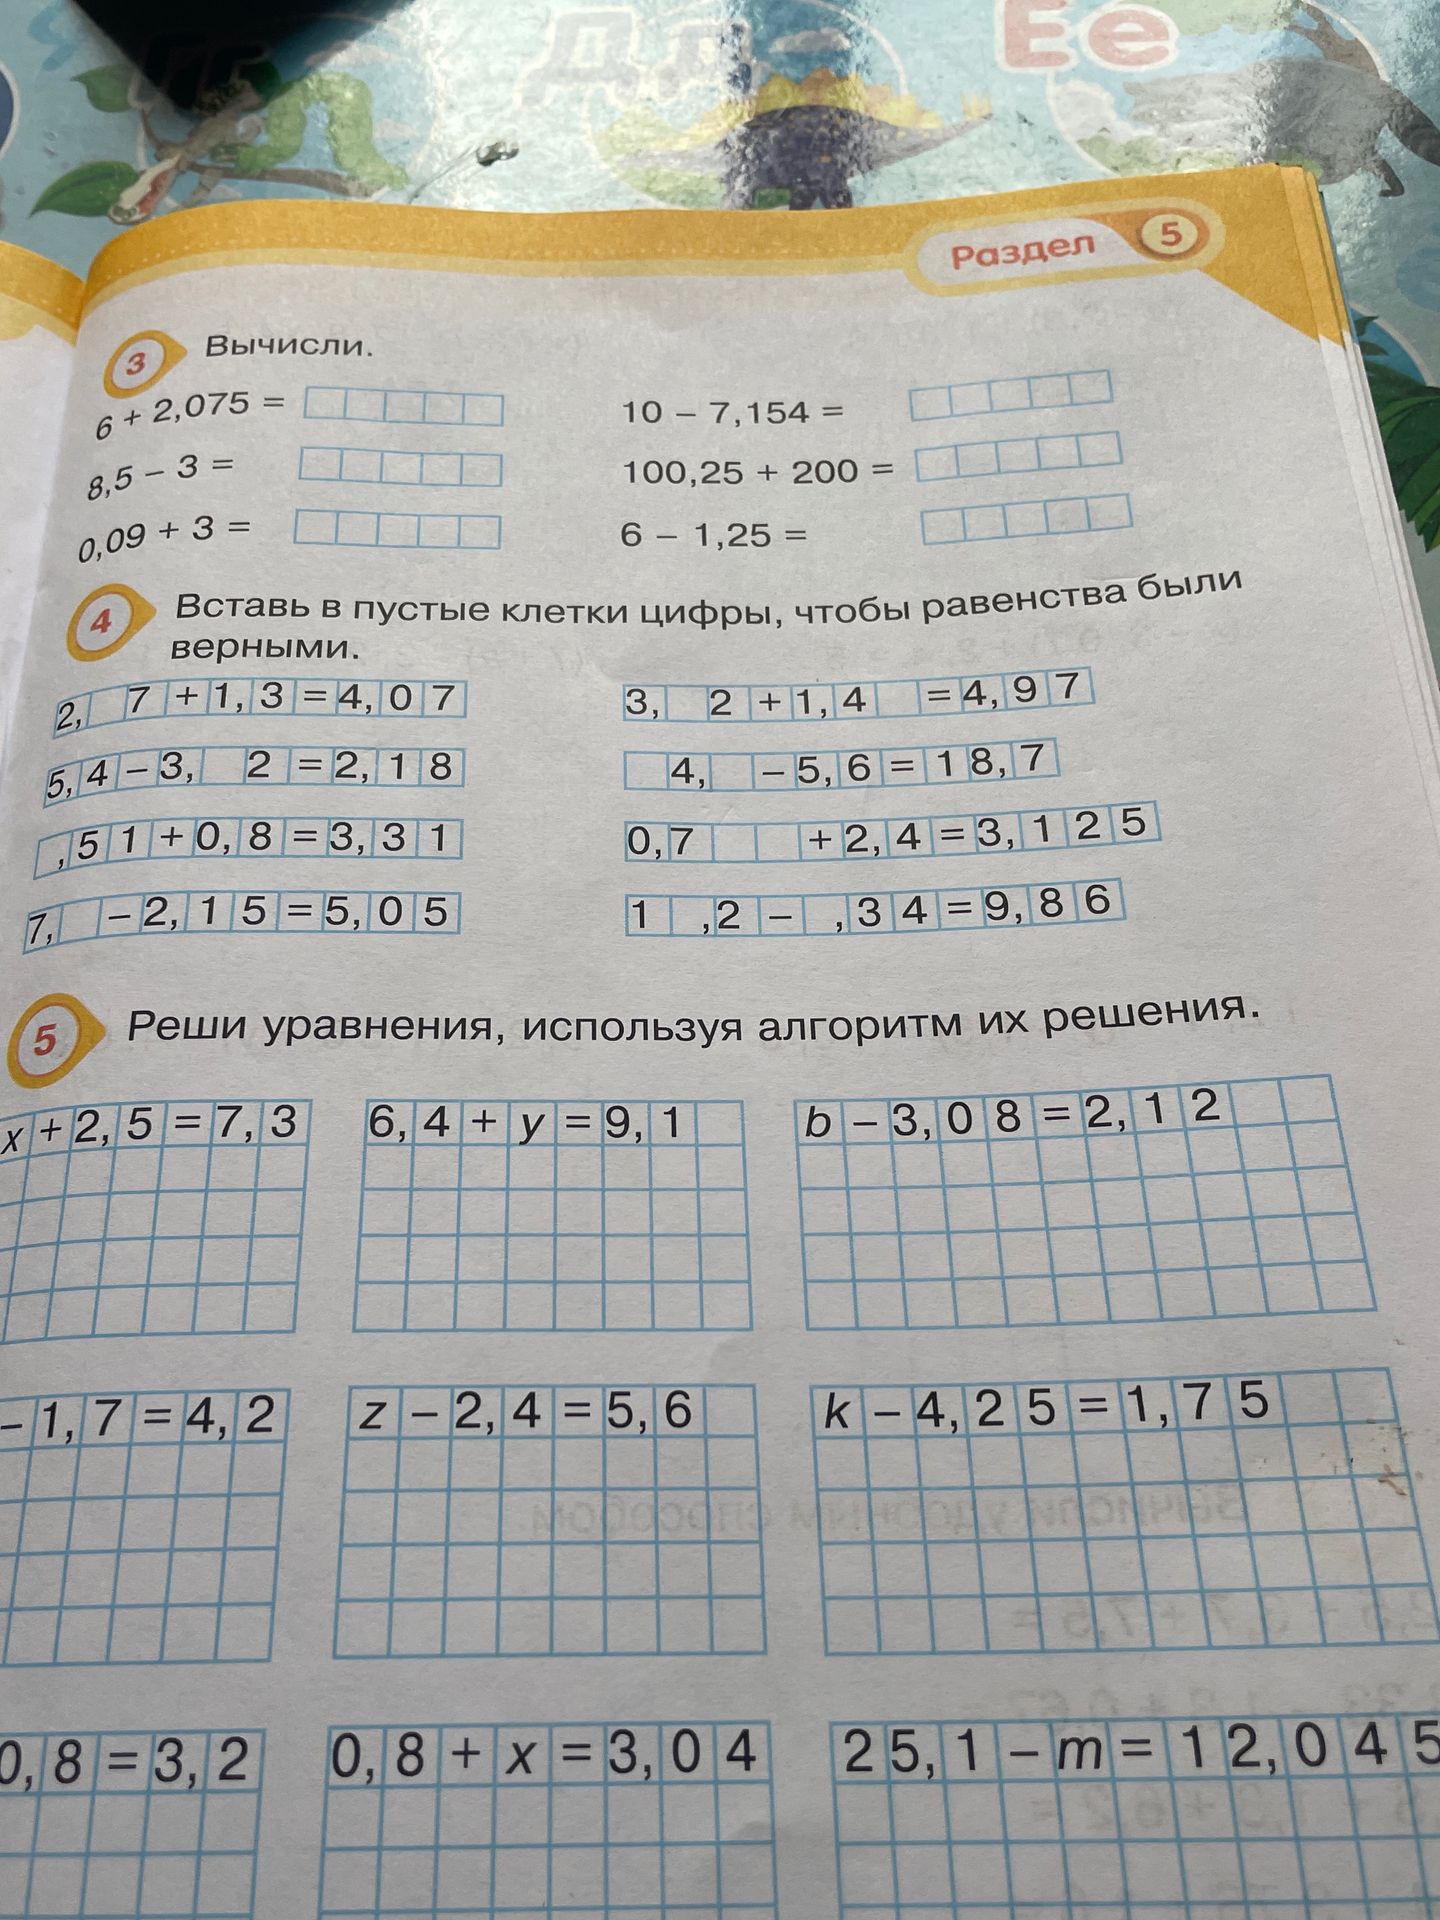 Гг Дд Ее
Раздел 5
3 Вычисли.
6 + 2,075 = 10 – 7,154 =
8,5 – 3 = 100,25 + 200 =
0,09 + 3 = 6 – 1,25 =
4 Вставь в пустые клетки цифры, чтобы равенства были
верными.
2, 7 + 1,3 = 4,07 3, 2 + 1,4 = 4,97
5,4 – 3, 2 = 2,18 4, – 5,6 = 18,7
,51 + 0,8 = 3,31 0,7 + 2,4 = 3,125
7, – 2,15 = 5,05 1 ,2 – ,34 = 9,86
5 Реши уравнения, используя алгоритм их решения.
x + 2,5 = 7,3 6,4 + y = 9,1 b – 3,08 = 2,12
– 1,7 = 4,2 z – 2,4 = 5,6 k – 4,25 = 1,75
0,8 = 3,2 0,8 + x = 3,04 25,1 – m = 12,045